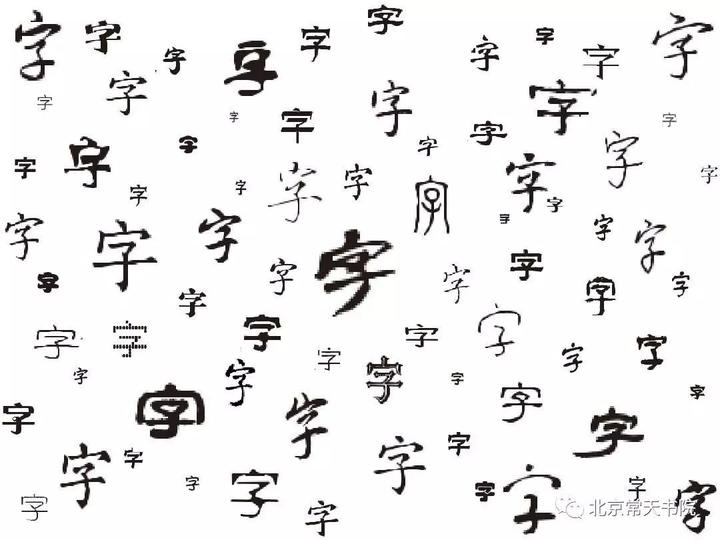 字 字 字 字 字 字 字 字 字 字
字 字 字 字 字 字 字 字
字 字 字 字 字 字 字 字 字 字 字 字 字
字 字 字 字 字 字 字 字 字 字 字 字 字
字 字 字 字 字 字 字 字 字
字 字 字 字 字 字 字 字 字 字
字 字 字 字 字 字 字 字 字 字 字 字
北京常天书院